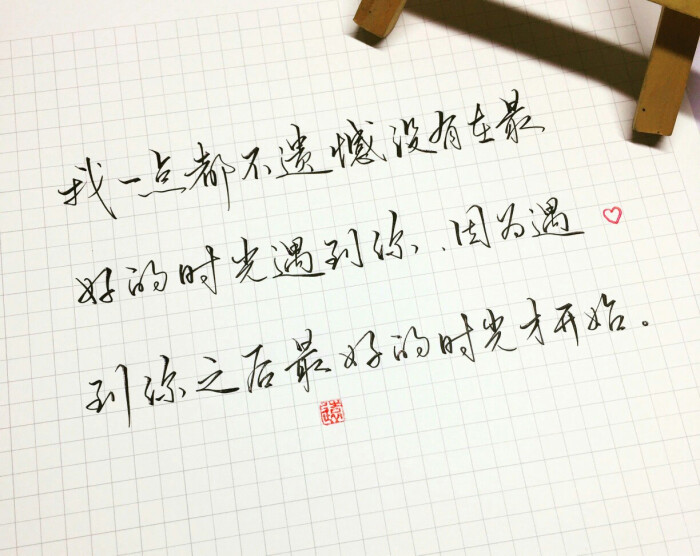 我一点都不遗憾没有在最
好的时光遇到你，因为遇
到你之后最好的时光才开始。